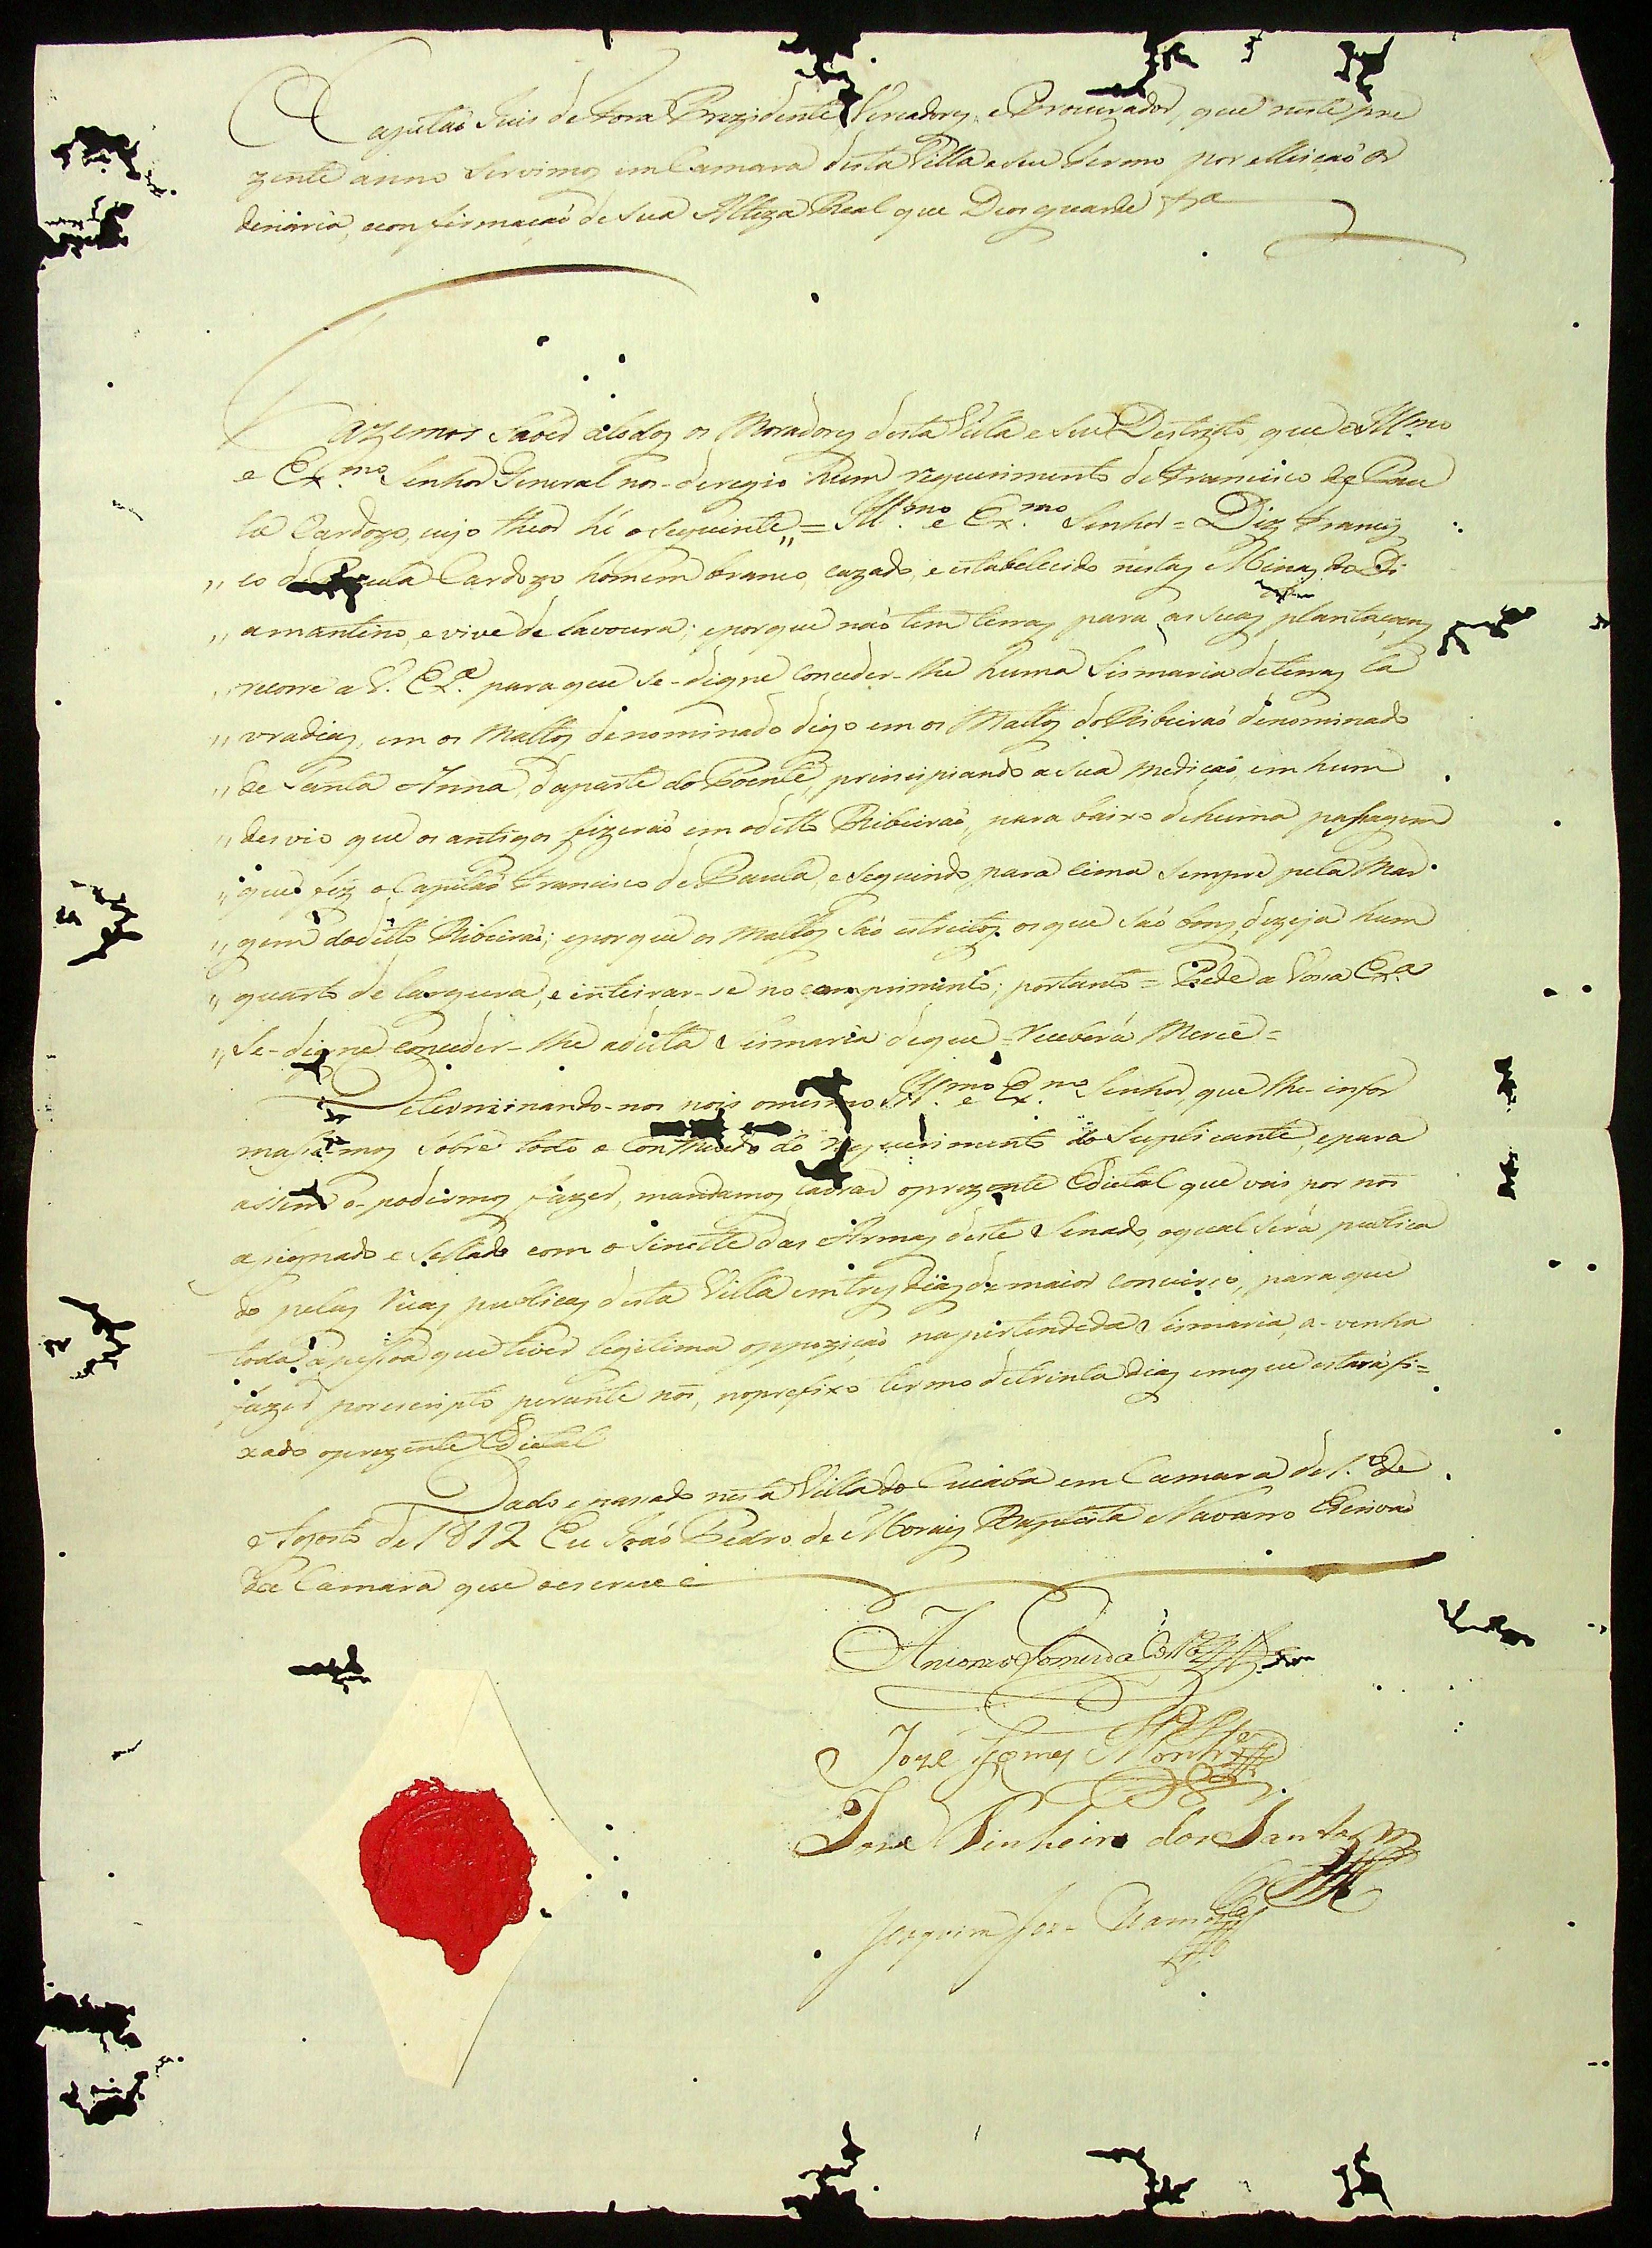 Capitaõ Juis de Fora Prezidente, Vereadores, e Procurador, que neste pre
zente anno servimos em Camara desta Villa e seu termo por elleiçaõ or
dinaria, e confirmaçaõ de Sua Alteza Real que Deos guarde &a
Fazemos saber a todos os Moradores desta Villa e seu Destricto, que o Illmo
e Exmo Senhor General nos-deregio hum requerimento de Francisco de Pau
la Cardozo, cujo theor hé o seguinte,, = Illmo e Exmo Senhor = Diz Francis
,, co de Paula Cardozo homem branco, cazado, e estabelecido nestas Minas do Di
,, amantino, e vive de lavoura; e porque naõ tem terras para as suas plantaçoens
,, recorre a V. Exa para que se-digne conceder-lhe huma Sismaria de terras la
,, vradias, em os Mattos denominado digo em os Mattos do Ribeiraõ denominado
,, de Santa Anna, da parte do Poente, principiando a sua mediçaõ em hum
,, desvio que os antigos fizeraõ em o ditto Ribeiraõ, para baixo de huma passagem
,, que fez o Capitaõ Francisco de Paula, e seguindo para cima sempre pela Mar
,, gem do ditto Ribeiraõ; e porque os Mattos saõ estreitos os que saõ bons, dezeja hum
,, quarto de largura, e inteirar-se no comprimento; portanto = Pede a Vossa Exa
,, se-digne conceder-lhe a ditta Sismaria de que = Receberá Mercê =
Determinando-nos pois o mesmo Illmo e Exmo Senhor, que lhe-infor
massemos sobre todo o Contheudo do requerimento do Suplicante, e para
assim o-podermos fazer, mandamos lavrar o prezente Edictal que vai por nós
asignado e Sellado com o Sinette das Armas deste Senado, o qual será publica
do pelas Ruas publicas desta Villa em tres dias de maior concurso, para que
toda a pessoa que tiver legitima oppoziçaõ na pertendeda Sismaria, a-venha
fazer por escripto perante nós, no prefixo termo de trinta dias em que estará fi=
xado o prezente Edictal
Dado e passado nesta Villa do Cuiaba em Camara de 1.º de
Agosto de 1812 Eu Joaõ Pedro de Moraes Baptista Navarro Escrivaõ
da Camara que o escrevi
Antonio Gomes da Costa
José Gomes Montro
José Pinheiro dos Santos
Joaquim Jose Ramos